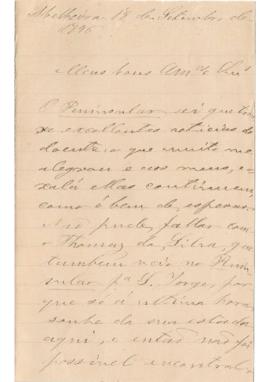 18 de Setembro de
1896
Meus bons Amos e Snrs
O Peninsular sei que trou-
xe excellentes noticias do
doente o que muito me
alegrou e aos meus, o-
xalá ellas continuem
como é bem de esperar.
Não pude fallar com
o Thomaz da Silva, que
tambem veio no Penin-
sular pa S. Jorge, por
que só á ultima hora
soube da sua estada
aqui, e então não foi
possivel encontral-